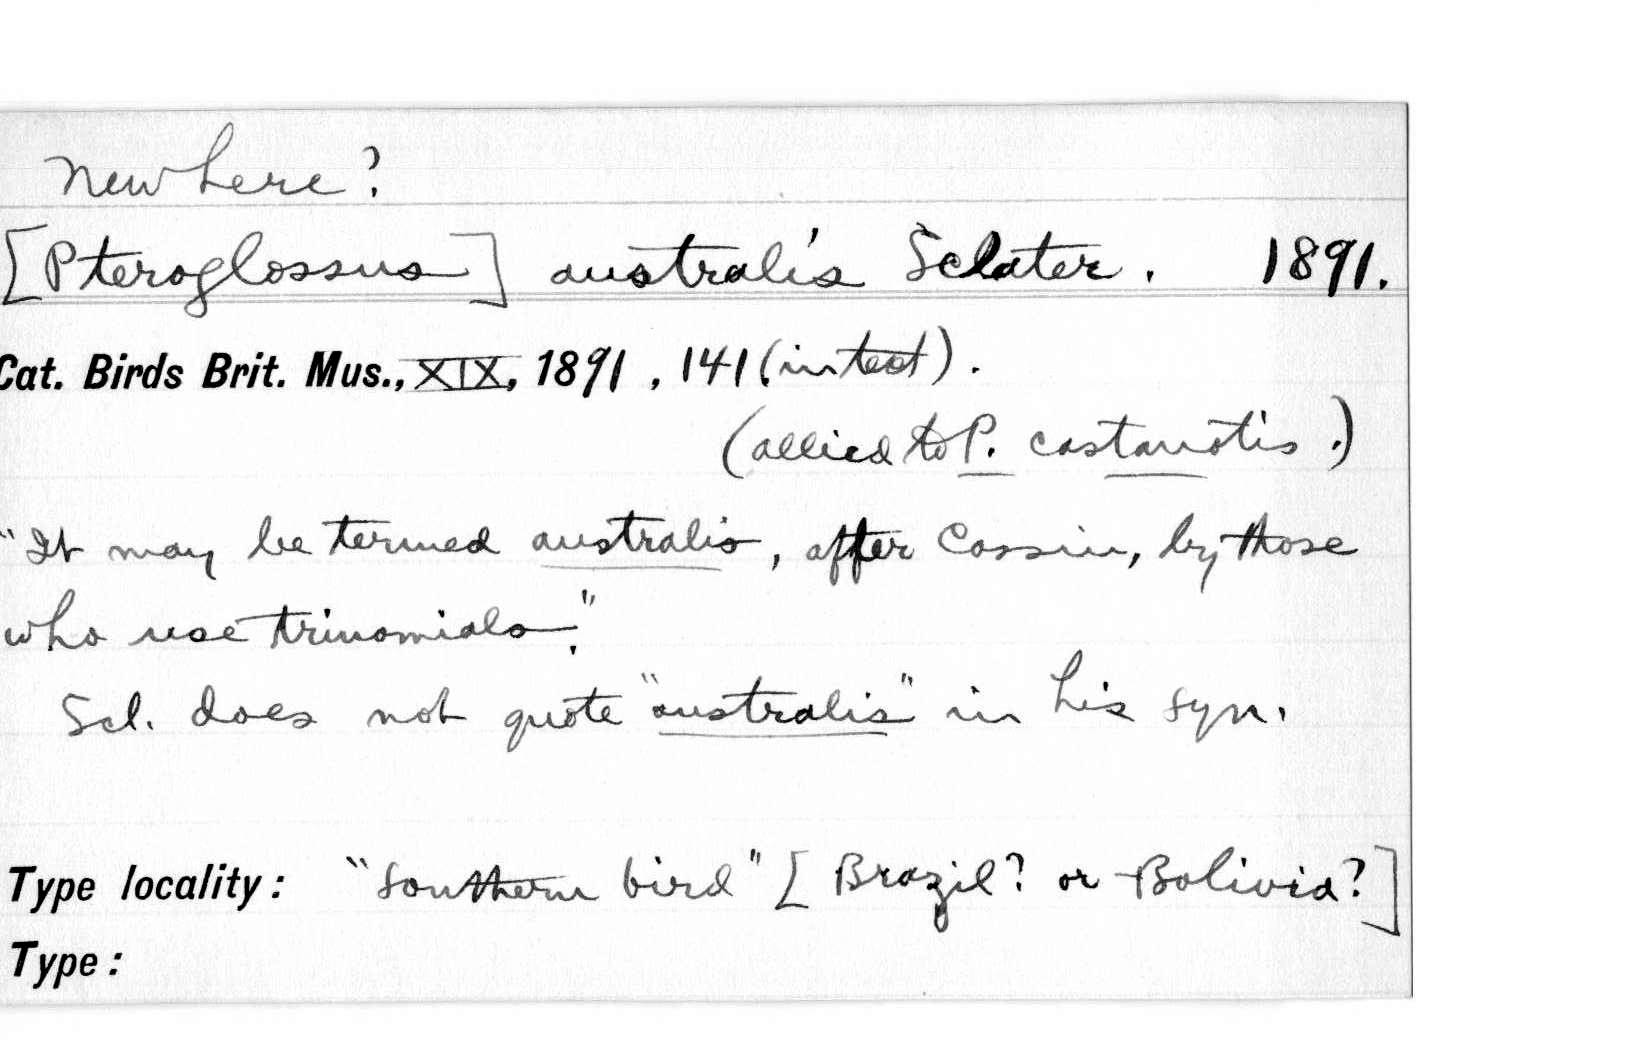 New here?
[Pteroglossus] australis Sclater. 1891.
Cat. Birds Brit. Mus., XIX, 1891, 141 (in text).
(allied to P. castanotis.)
"It may be termed australis, after Cassin, by those
who use trinomials."
Scl. does not quote "australis" in his syn.
Type locality: "Southern bird" [Brazil? or Bolivia?]
Type: